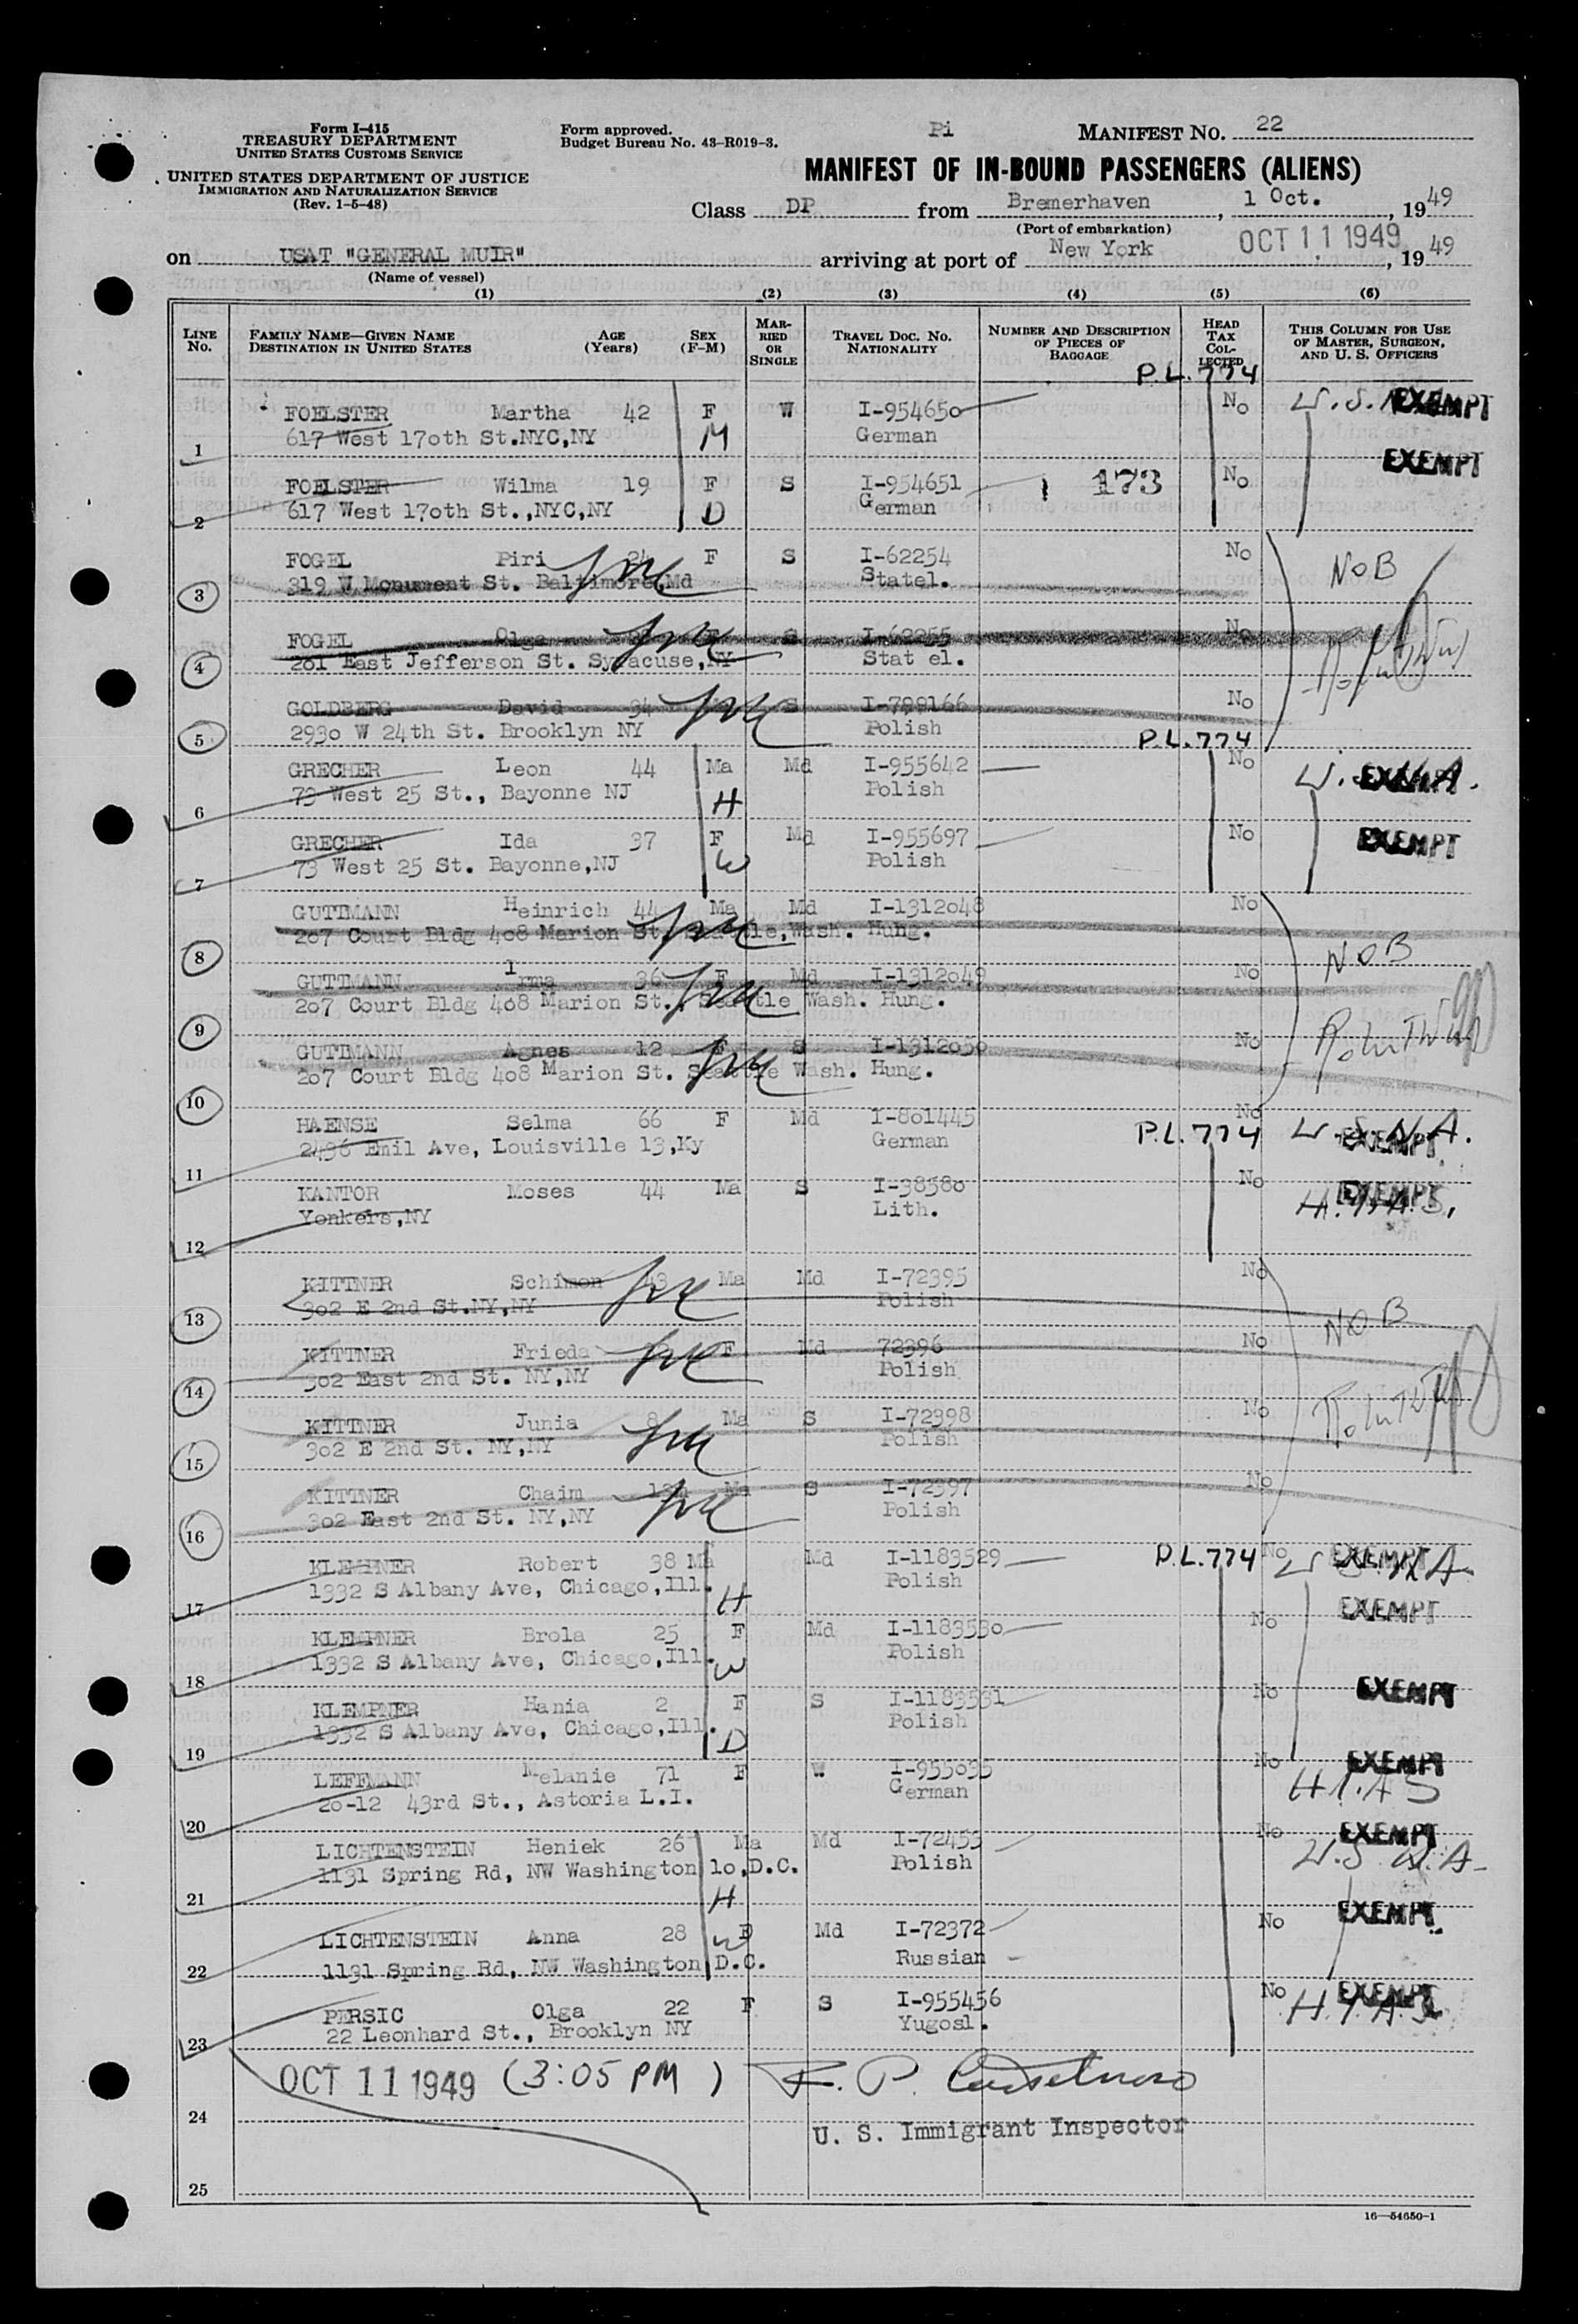 Form I-415
TREASURY DEPARTMENT
UNITED STATES CUSTOMS SERVICE
UNITED STATES DEPARTMENT OF JUSTICE
IMMIGRATION AND NATURALIZATION SERVICE
(Rev. 1-5-48)
Form approved.
Budget Bureau No. 43-R019-3.
Pi
MANIFEST NO. 22
MANIFEST OF IN-BOUND PASSENGERS (ALIENS)
Class DP from Bremerhaven, 1 Oct., 1949
(Port of embarkation)
on USAT "GENERAL MUIR" arriving at port of New York OCT 11 1949, 1949
(Name of vessel)
(1) (2) (3) (4) (5) (6)
LINE No. FAMILY NAME—GIVEN NAME DESTINATION IN UNITED STATES AGE (Years) SEX (F-M) MARRIED OR SINGLE TRAVEL DOC. NO. NATIONALITY NUMBER AND DESCRIPTION OF PIECES OF BAGGAGE HEAD TAX COLLECTED THIS COLUMN FOR USE OF MASTER, SURGEON, AND U. S. OFFICERS
P.L. 774
FOELSTER Martha 42 F W I-954650 No EXEMPT
1 617 West 170th St.NYC,NY M German
EXEMPT
FOELSTER Wilma 19 F S I-954651 1 173 No
2 617 West 170th St.,NYC,NY D German
FOGEL Piri 24 F S I-62254 No NOB
3 319 W Monument St. Baltimore,Md Statel.
FOGEL Olga S I-62255 No
4 201 East Jefferson St. Syracuse,NY Stat el.
GOLDBERG David 34 S I-799166 No
5 2930 W 24th St. Brooklyn NY Polish
P.L. 774
GRECHER Leon 44 Ma Md I-955642 No EXEMPT
6 73 West 25 St., Bayonne NJ H Polish
GRECHER Ida 37 F Md I-955697 No EXEMPT
7 73 West 25 St. Bayonne,NJ W Polish
GUTTMANN Heinrich 44 Ma Md I-1312048 No
8 207 Court Bldg 408 Marion St. Seattle,Wash. Hung. NOB
GUTTMANN Irma 36 F Md I-1312049 No
9 207 Court Bldg 408 Marion St. Seattle Wash. Hung.
GUTTMANN Agnes 12 F S I-1312050 No
10 207 Court Bldg 408 Marion St. Seattle Wash. Hung.
HAENSE Selma 66 F Md I-801445 No
11 2436 Emil Ave, Louisville 13,Ky German P.L. 774 U.S.N.A. EXEMPT
KANTOR Moses 44 Ma S I-38580 No EXEMPT
12 Yonkers,NY Lith. H.I.A.S.
KITTNER Schimon 43 Ma Md I-72395 No
13 302 E 2nd St.NY,NY Polish NOB
KITTNER Frieda F Md 72396 No
14 302 East 2nd St. NY,NY Polish
KITTNER Junia 8 Ma S I-72398 No
15 302 E 2nd St. NY,NY Polish
KITTNER Chaim Ma S I-72397 No
16 302 East 2nd St. NY,NY Polish
KLEMPNER Robert 38 Ma Md I-1183529 P.L. 774 No EXEMPT
17 1332 S Albany Ave, Chicago,Ill. H Polish
EXEMPT
KLEMPNER Brola 25 F Md I-1183530 No
18 1332 S Albany Ave, Chicago,Ill. W Polish
KLEMPNER Hania 2 F S I-1183531 No EXEMPT
19 1332 S Albany Ave, Chicago,Ill. D Polish
LEFFMANN Melanie 71 F W I-955035 No EXEMPT
20 20-12 43rd St., Astoria L.I. German H.I.A.S
LICHTENSTEIN Heniek 26 Ma Md I-72453 No EXEMPT
21 1131 Spring Rd, NW Washington 10,D.C. H Polish U.S.N.A.
EXEMPT
LICHTENSTEIN Anna 28 F W Md I-72372 No
22 1131 Spring Rd, NW Washington D.C. Russian
PERSIC Olga 22 F S I-955456 No EXEMPT
23 22 Leonhard St., Brooklyn NY Yugosl. H.I.A.S
OCT 11 1949 (3:05 PM)
24 U. S. Immigrant Inspector
25
16—54650-1